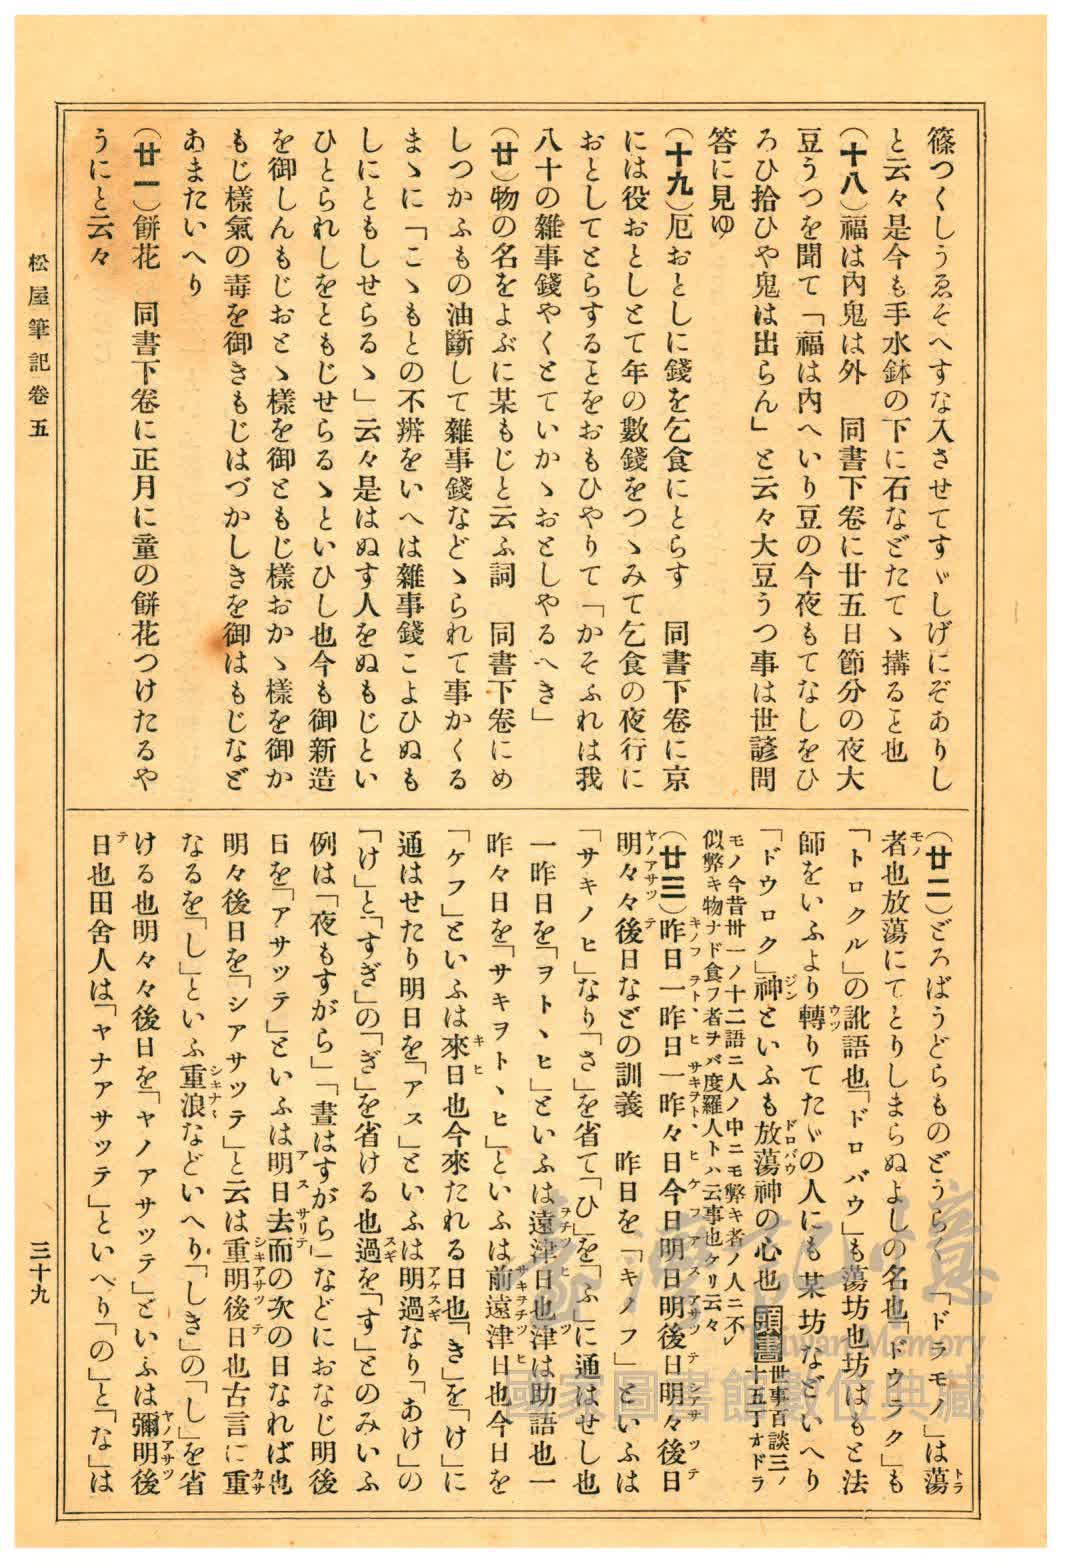 篠つくしうゑそへすな入させてすゞしげにぞありし
と云々是今も手水鉢の下に石などたてゝ搆ると也
（十八）福は內鬼は外　同書下卷に廿五日節分の夜大
豆うつを聞て「福は內へいり豆の今夜もてなしをひ
ろひ拾ひや鬼は出らん」と云々大豆うつ事は世諺問
答に見ゆ
（十九）厄おとしに錢を乞食にとらす　同書下卷に京
には役おとしとて年の數錢をつゝみて乞食の夜行に
おとしてとらすることをおもひやりて「かそふれは我
八十の雜事錢やくとていかゝおとしやるへき」
（廿）物の名をよぶに某もじと云ふ詞　同書下卷にめ
しつかふもの油斷して雜事錢などゝられて事かくる
まゝに「こゝもとの不辨をいへは雜事錢こよひぬも
しにともしせらるゝ」云々是はぬす人をぬもじとい
ひとられしをともじせらるゝといひし也今も御新造
を御しんもじおとゝ樣を御ともじ樣おかゝ樣を御か
もじ樣氣の毒を御きもじはづかしきを御はもじなど
あまたいへり
（廿一）餅花　同書下卷に正月に童の餅花つけたるや
うにと云々
（廿二）どろばうどらものどうらく「ドラモノ」は蕩トラ
者モノ也放蕩にてとりしまらぬよしの名也「ドウラク」も
「トロクル」の訛語也「ドロバウ」も蕩坊也坊はもと法
師をいふより轉ウツりてたゞの人にも某坊などいへり
「ドウロク」神ジンといふも放蕩ドロバウ神の心也 頭書 世事百談三ノ十五丁オドラ
モノ今昔卅一ノ十二語ニ人ノ中ニモ弊キ者ノ人ニ不レ
似弊キ物ナド食フ者ヲバ度羅人トハ云事也ケリ云々
（廿三）昨日キノフ一昨日ヲトヽヒ一昨々日サキヲトヽヒ今日ケフ明日アス明後日アサツテ明々後日シアサツテ
明々々後日ヤノアサツテなどの訓義　昨日を「キノフ」といふは
「サキノヒ」なり「さ」を省て「ひ」を「ふ」に通はせし也
一昨日を「ヲトヽヒ」といふは遠津日ヲチツヒ也津ツは助語也一
昨々日を「サキヲトヽヒ」といふは前遠津日サキヲチツヒ也今日を
「ケフ」といふは來日キヒ也今來たれる日也「き」を「け」に
通はせたり明日を「アス」といふは明過アケスギなり「あけ」の
「け」と「すぎ」の「ぎ」を省ける也過スギを「す」とのみいふ
例は「夜もすがら」「晝はすがら」などにおなじ明後
日を「アサツテ」といふは明日アス去而サリテの次の日なれば也
明々後日を「シアサツテ」と云は重明後日シキアサツテ也古言に重カサ
なるを「し」といふ重浪シキナミなどいへり「しき」の「し」を省
ける也明々々後日を「ヤノアサツテ」といふは彌明後ヤノアサツ
日テ也田舍人は「ヤナアサツテ」といへり「の」と「な」は
松屋筆記卷五
三十九
臺灣記憶
Taiwan Memory
國家圖書館數位典藏